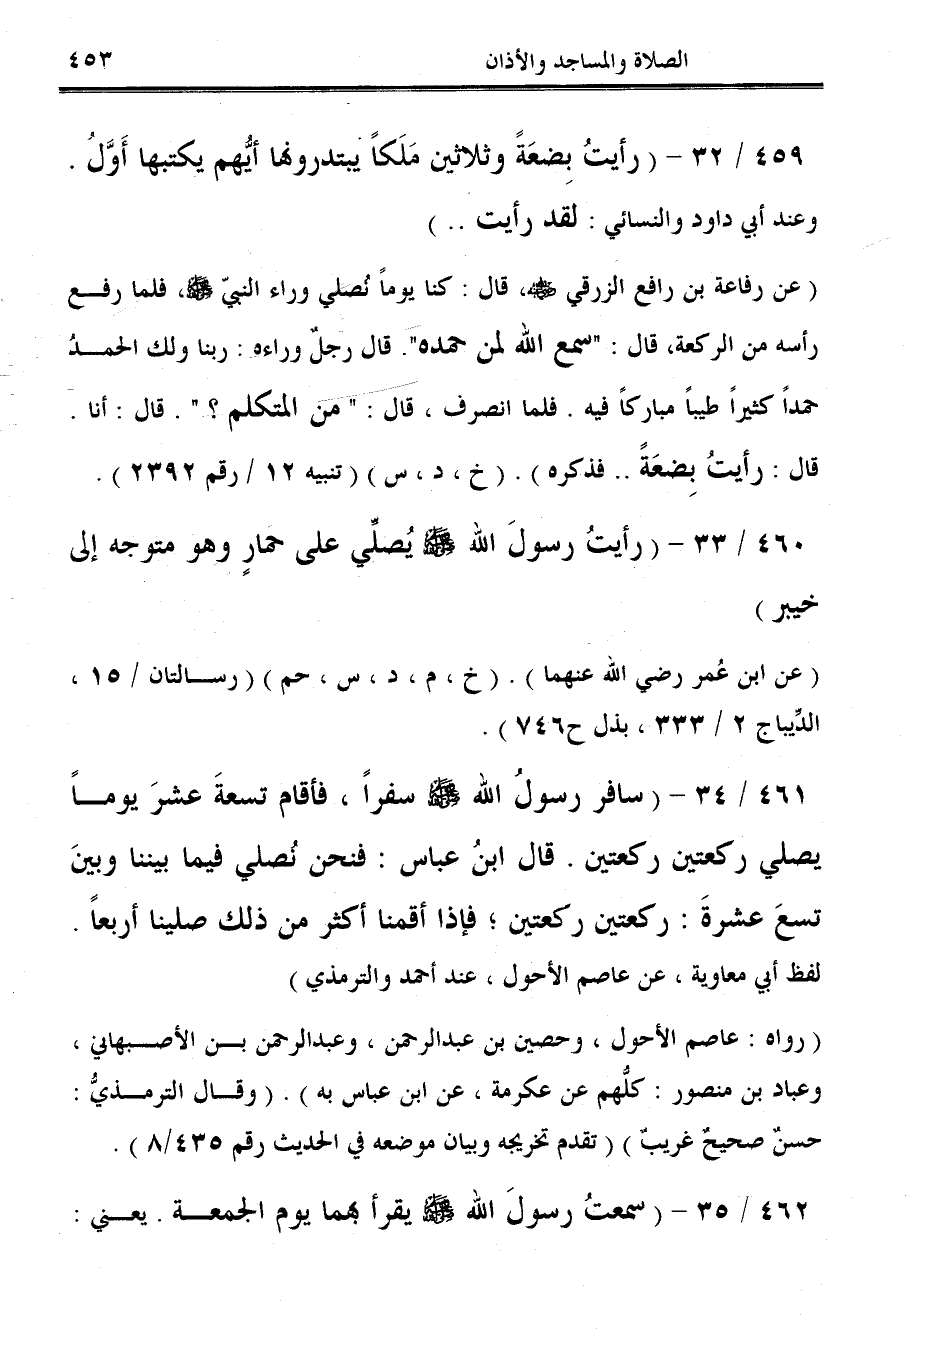 الصلاة والمساجد والأذان ٤٥٣
٤٥٩ / ٣٢ - ( رأيتُ بِضعَةً وثلاثين مَلَكاً يبتدرونها أيُّهم يكتبها أَوَّلُ .
وعند أبي داود والنسائي : لقد رأيت .. )
( عن رفاعة بن رافع الزرقي ﷺ، قال : كنا يوماً نُصلي وراء النبيّ ﷺ، فلما رفع
رأسه من الركعة، قال : "سمع الله لمن حمده". قال رجلٌ وراءه : ربنا ولك الحمدُ
حمداً كثيراً طيباً مباركاً فيه . فلما انصرف ، قال : " من المتكلم ؟ " . قال : أنا .
قال : رأيتُ بِضعَةً .. فذكره ) . ( خ ، د ، س ) ( تنبيه ١٢ / رقم ٢٣٩٢ ) .
٤٦٠ / ٣٣ - ( رأيتُ رسولَ الله ﷺ يُصلِّي على حمارٍ وهو متوجه إلى
خيبر )
( عن ابن عُمر رضي الله عنهما ) . ( خ ، م ، د ، س ، حم ) ( رسالتان / ١٥ ،
الدِّيباج ٢ / ٣٣٣ ، بذل ح٧٤٦ ) .
٤٦١ / ٣٤ - ( سافر رسولُ الله ﷺ سفراً ، فأقام تسعةَ عشرَ يوماً
يصلي ركعتين ركعتين . قال ابنُ عباس : فنحن نُصلي فيما بيننا وبينَ
تسعَ عشرةَ : ركعتين ركعتين ؛ فإذا أقمنا أكثر من ذلك صلينا أربعاً .
لفظ أبي معاوية ، عن عاصم الأحول ، عند أحمد والترمذي )
( رواه : عاصم الأحول ، وحصين بن عبدالرحمن ، وعبدالرحمن بن الأصبهاني ،
وعباد بن منصور : كلُّهم عن عكرمة ، عن ابن عباس به ) . ( وقال الترمذيُّ :
حسنٌ صحيحٌ غريبٌ ) ( تقدم تخريجه وبيان موضعه في الحديث رقم ٨/٤٣٥ ) .
٤٦٢ / ٣٥ - ( سمعتُ رسولَ الله ﷺ يقرأ بهما يوم الجمعة . يعني :